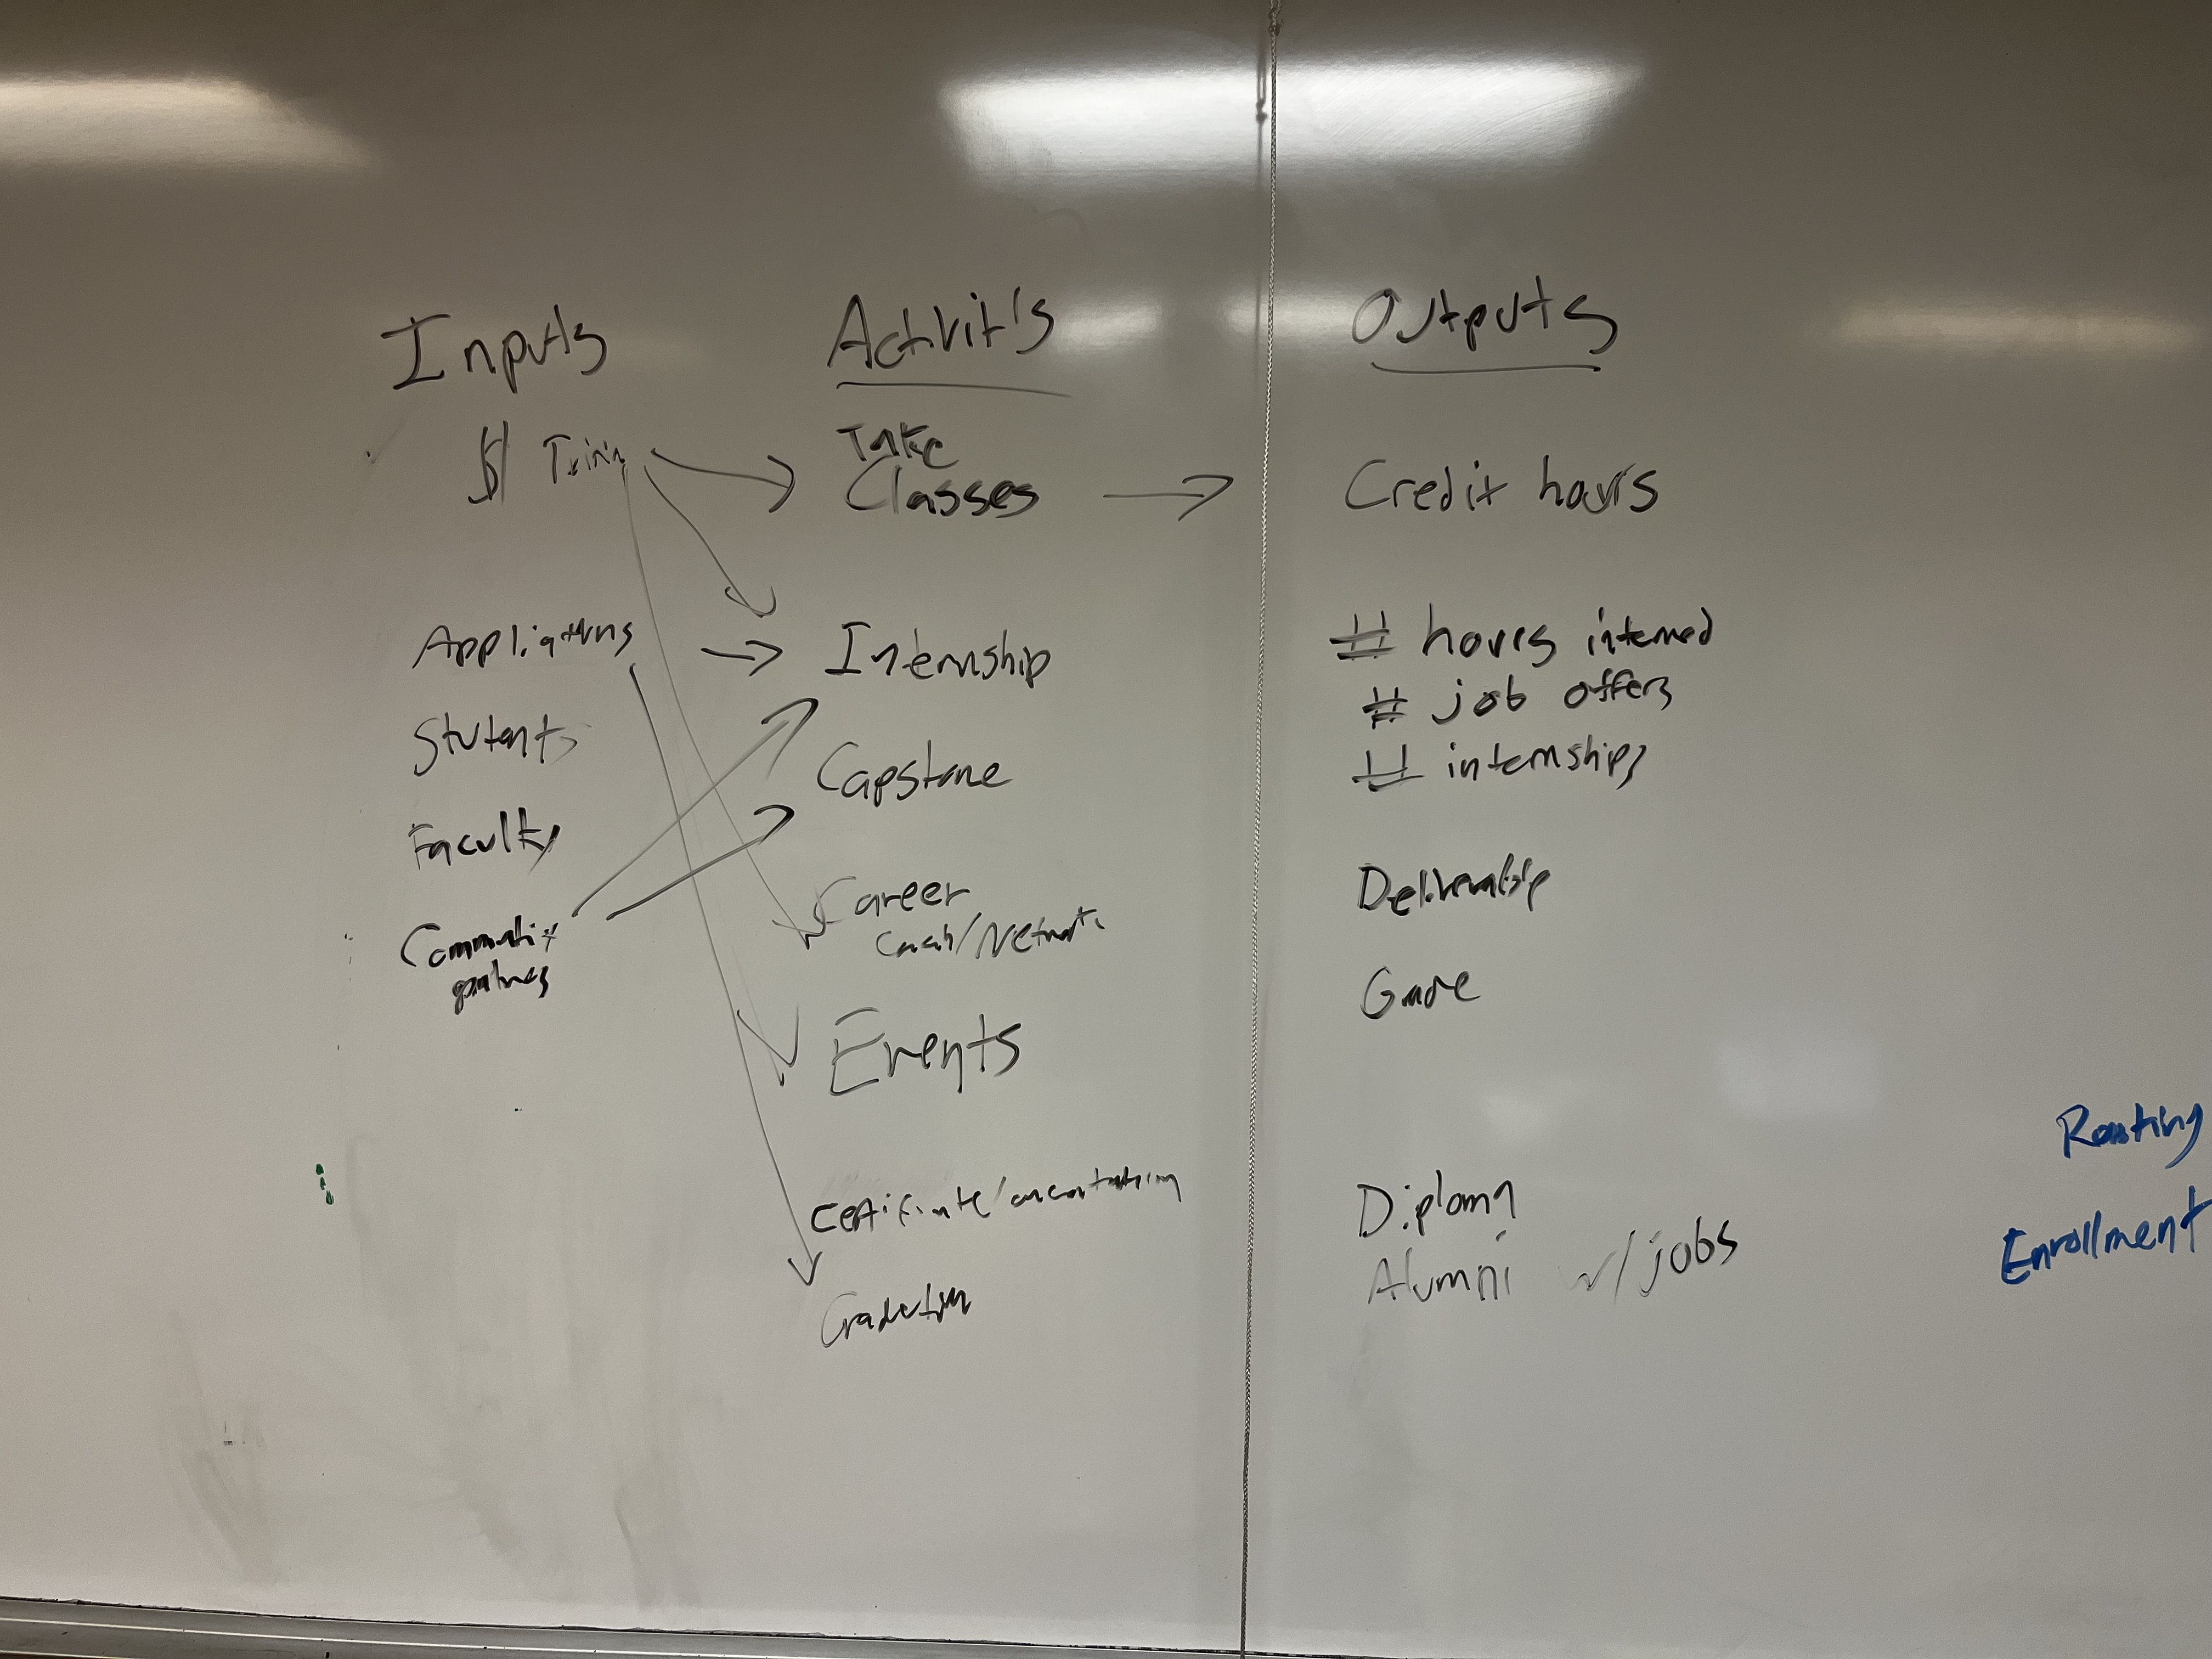 Inputs
Activit's
Outputs
$
Take
Classes
Credit hours
Applications
Internship
# hours interned
# job offers
# internships
Students
Capstone
Faculty
Deliverable
Career
Coach/Network
Community
partners
Grade
Events
Certificate/
Diploma
Alumni w/jobs
Graduation
Enrollment